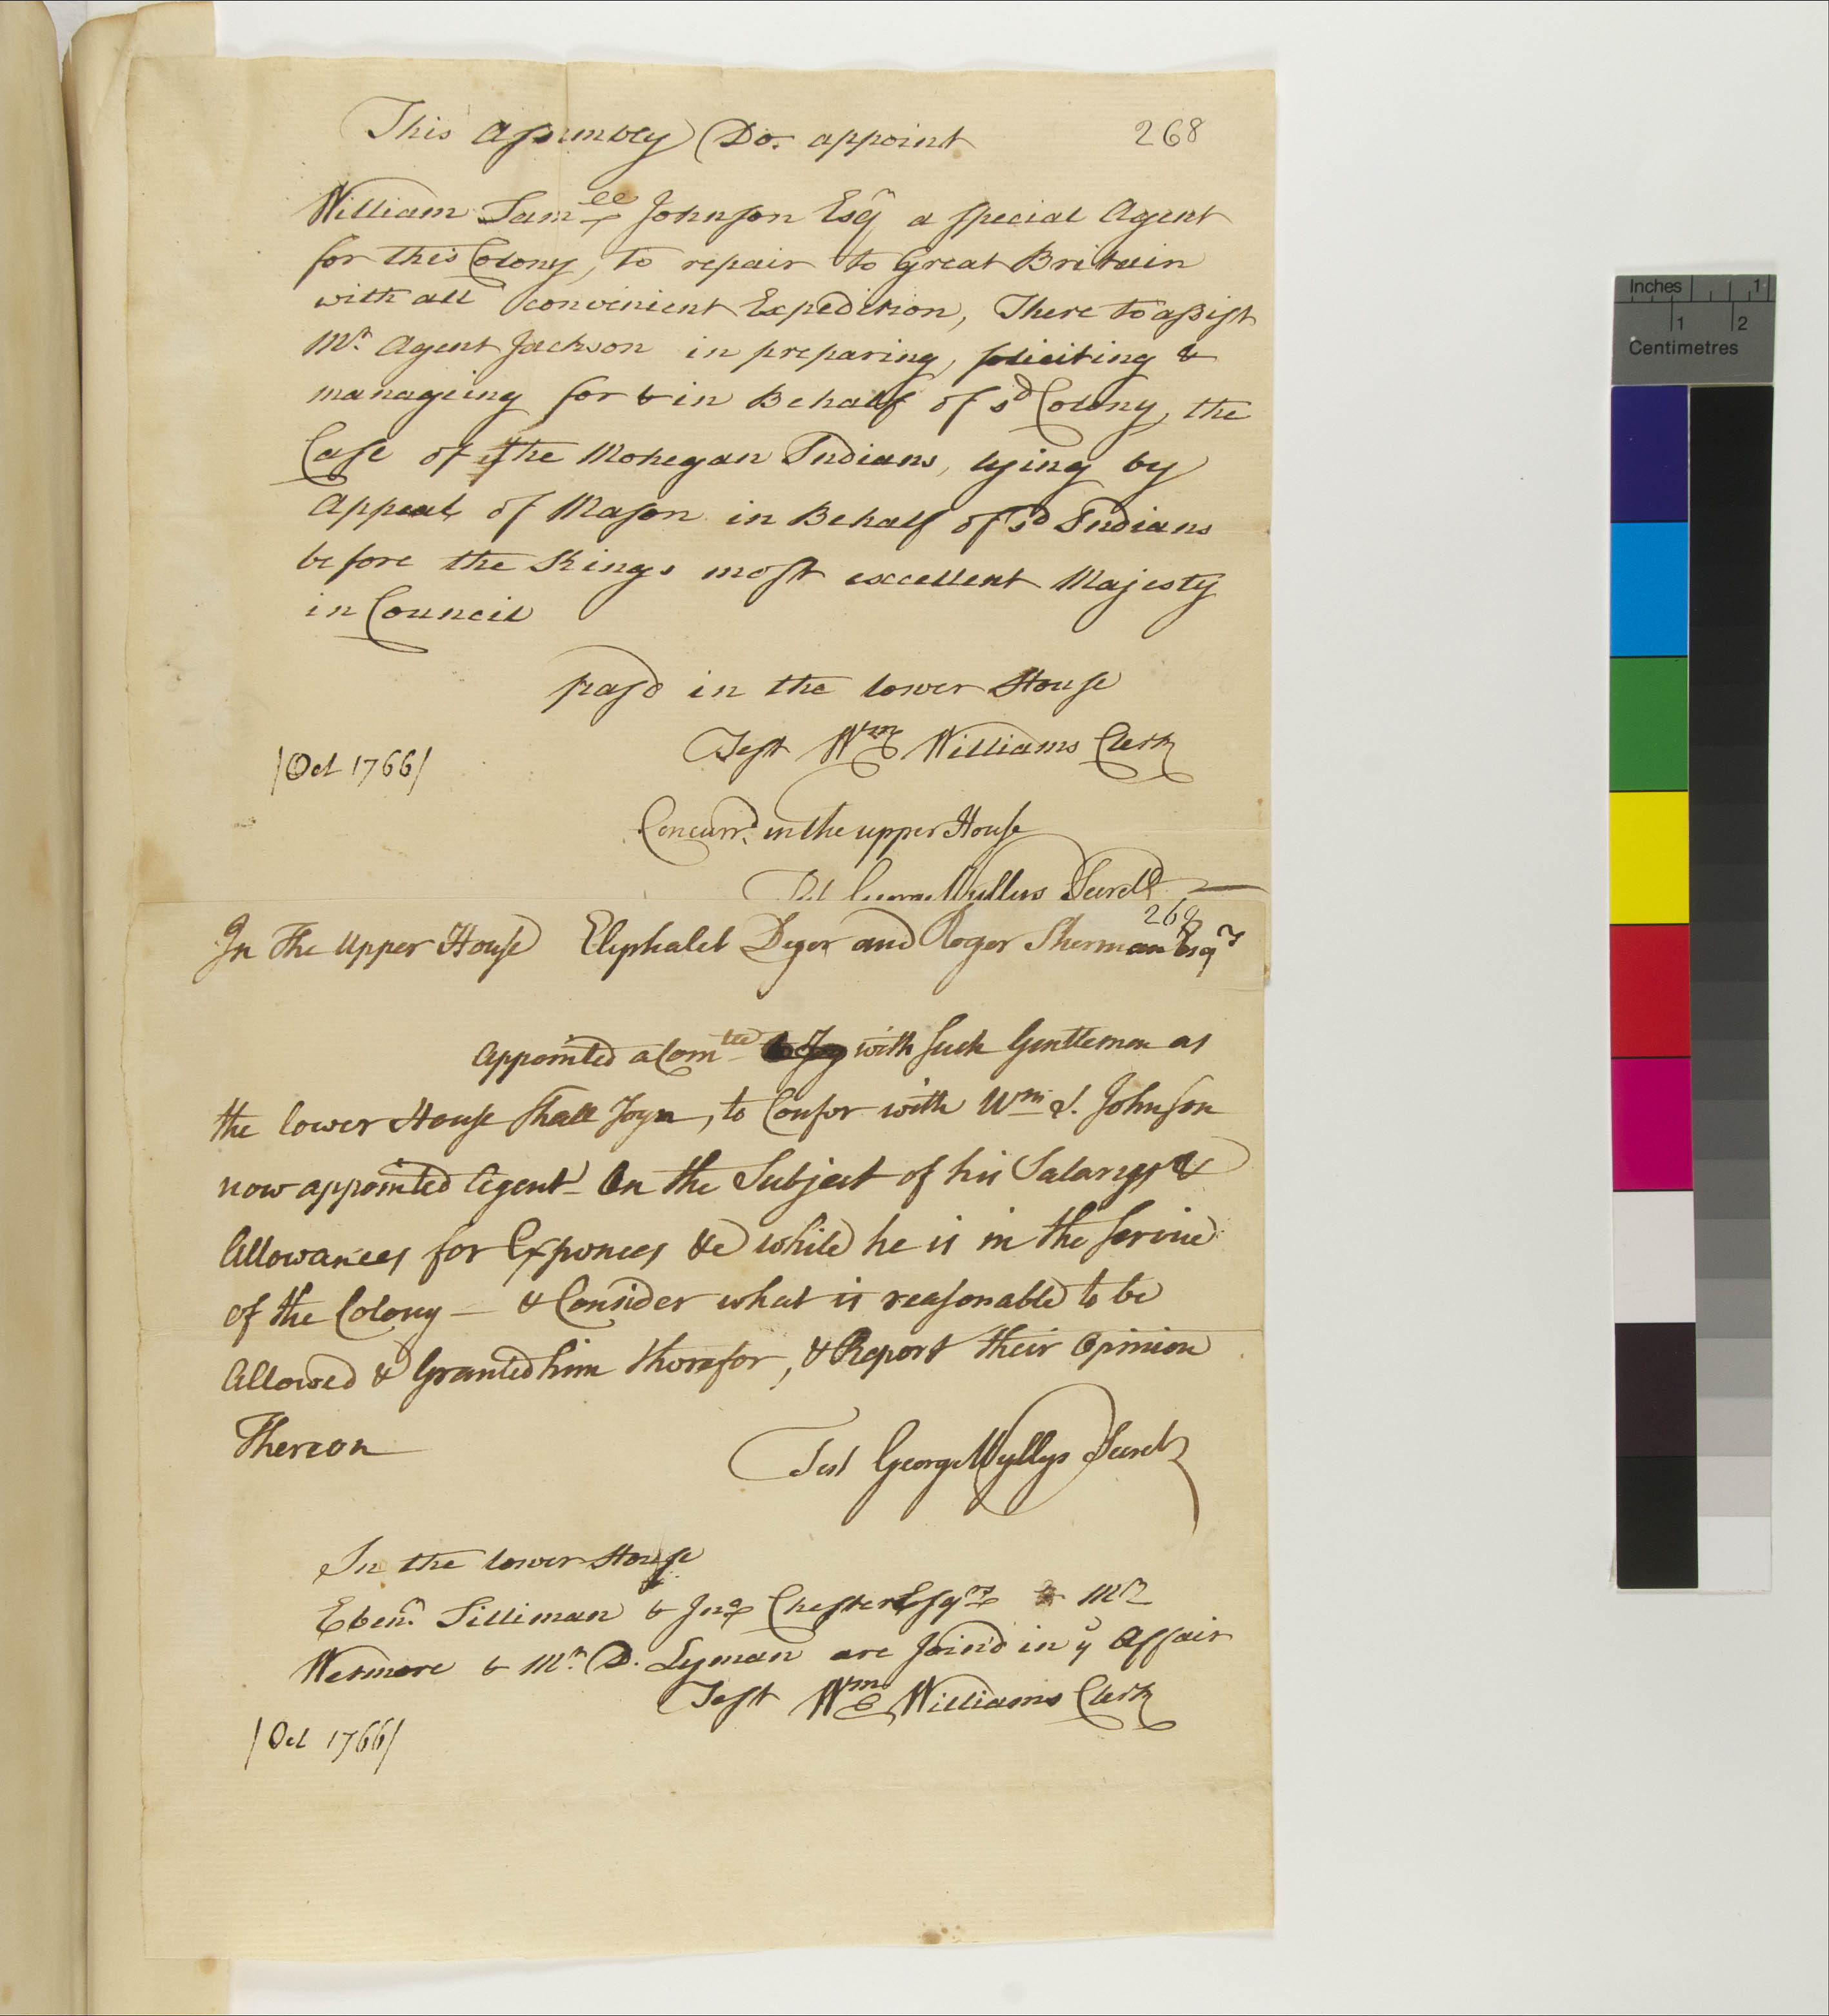 This Assembly Do. appoint
268
William Sam^ll Johnson Esq^r a special Agent
for this Colony, to repair to Great Britain
with all convenient Expedition, There to assist
M^r. Agent Jackson in preparing, soliciting &
manageing for & in Behalf of s^d Colony, the
Case of the Mohegan Indians, lying by
Appeal of Mason in Behalf of s^d Indians
before the Kings most excellent Majesty
in Council
pass'd in the lower House
Test W^m Williams Clerk
|Oct 1766|
Concurr^d. in the upper House
Test George Wyllys Secret^y
268
In The Upper House Eliphalet Dyer and Roger Sherman Esq^rs
Appointed a Com^tee with such Gentlemen as
the lower House shall Joyn, to Confer with W^m S. Johnson
now appointed Agent On the Subject of his Salary &
Allowances for Expences &c while he is in the service
of the Colony — & Consider what is reasonable to be
Allowed & Granted him therefor, & Report their Opinion
Thereon
Test George Wyllys Secret^y
In the lower House
Eben^r. Silliman & Jn^o Chester Esq^rs & M^r
Wetmore & M^r. D. Lyman are Joind in y^s Affair
Test W^m Williams Clerk
|Oct 1766|
Inches 1
1 2
Centimetres